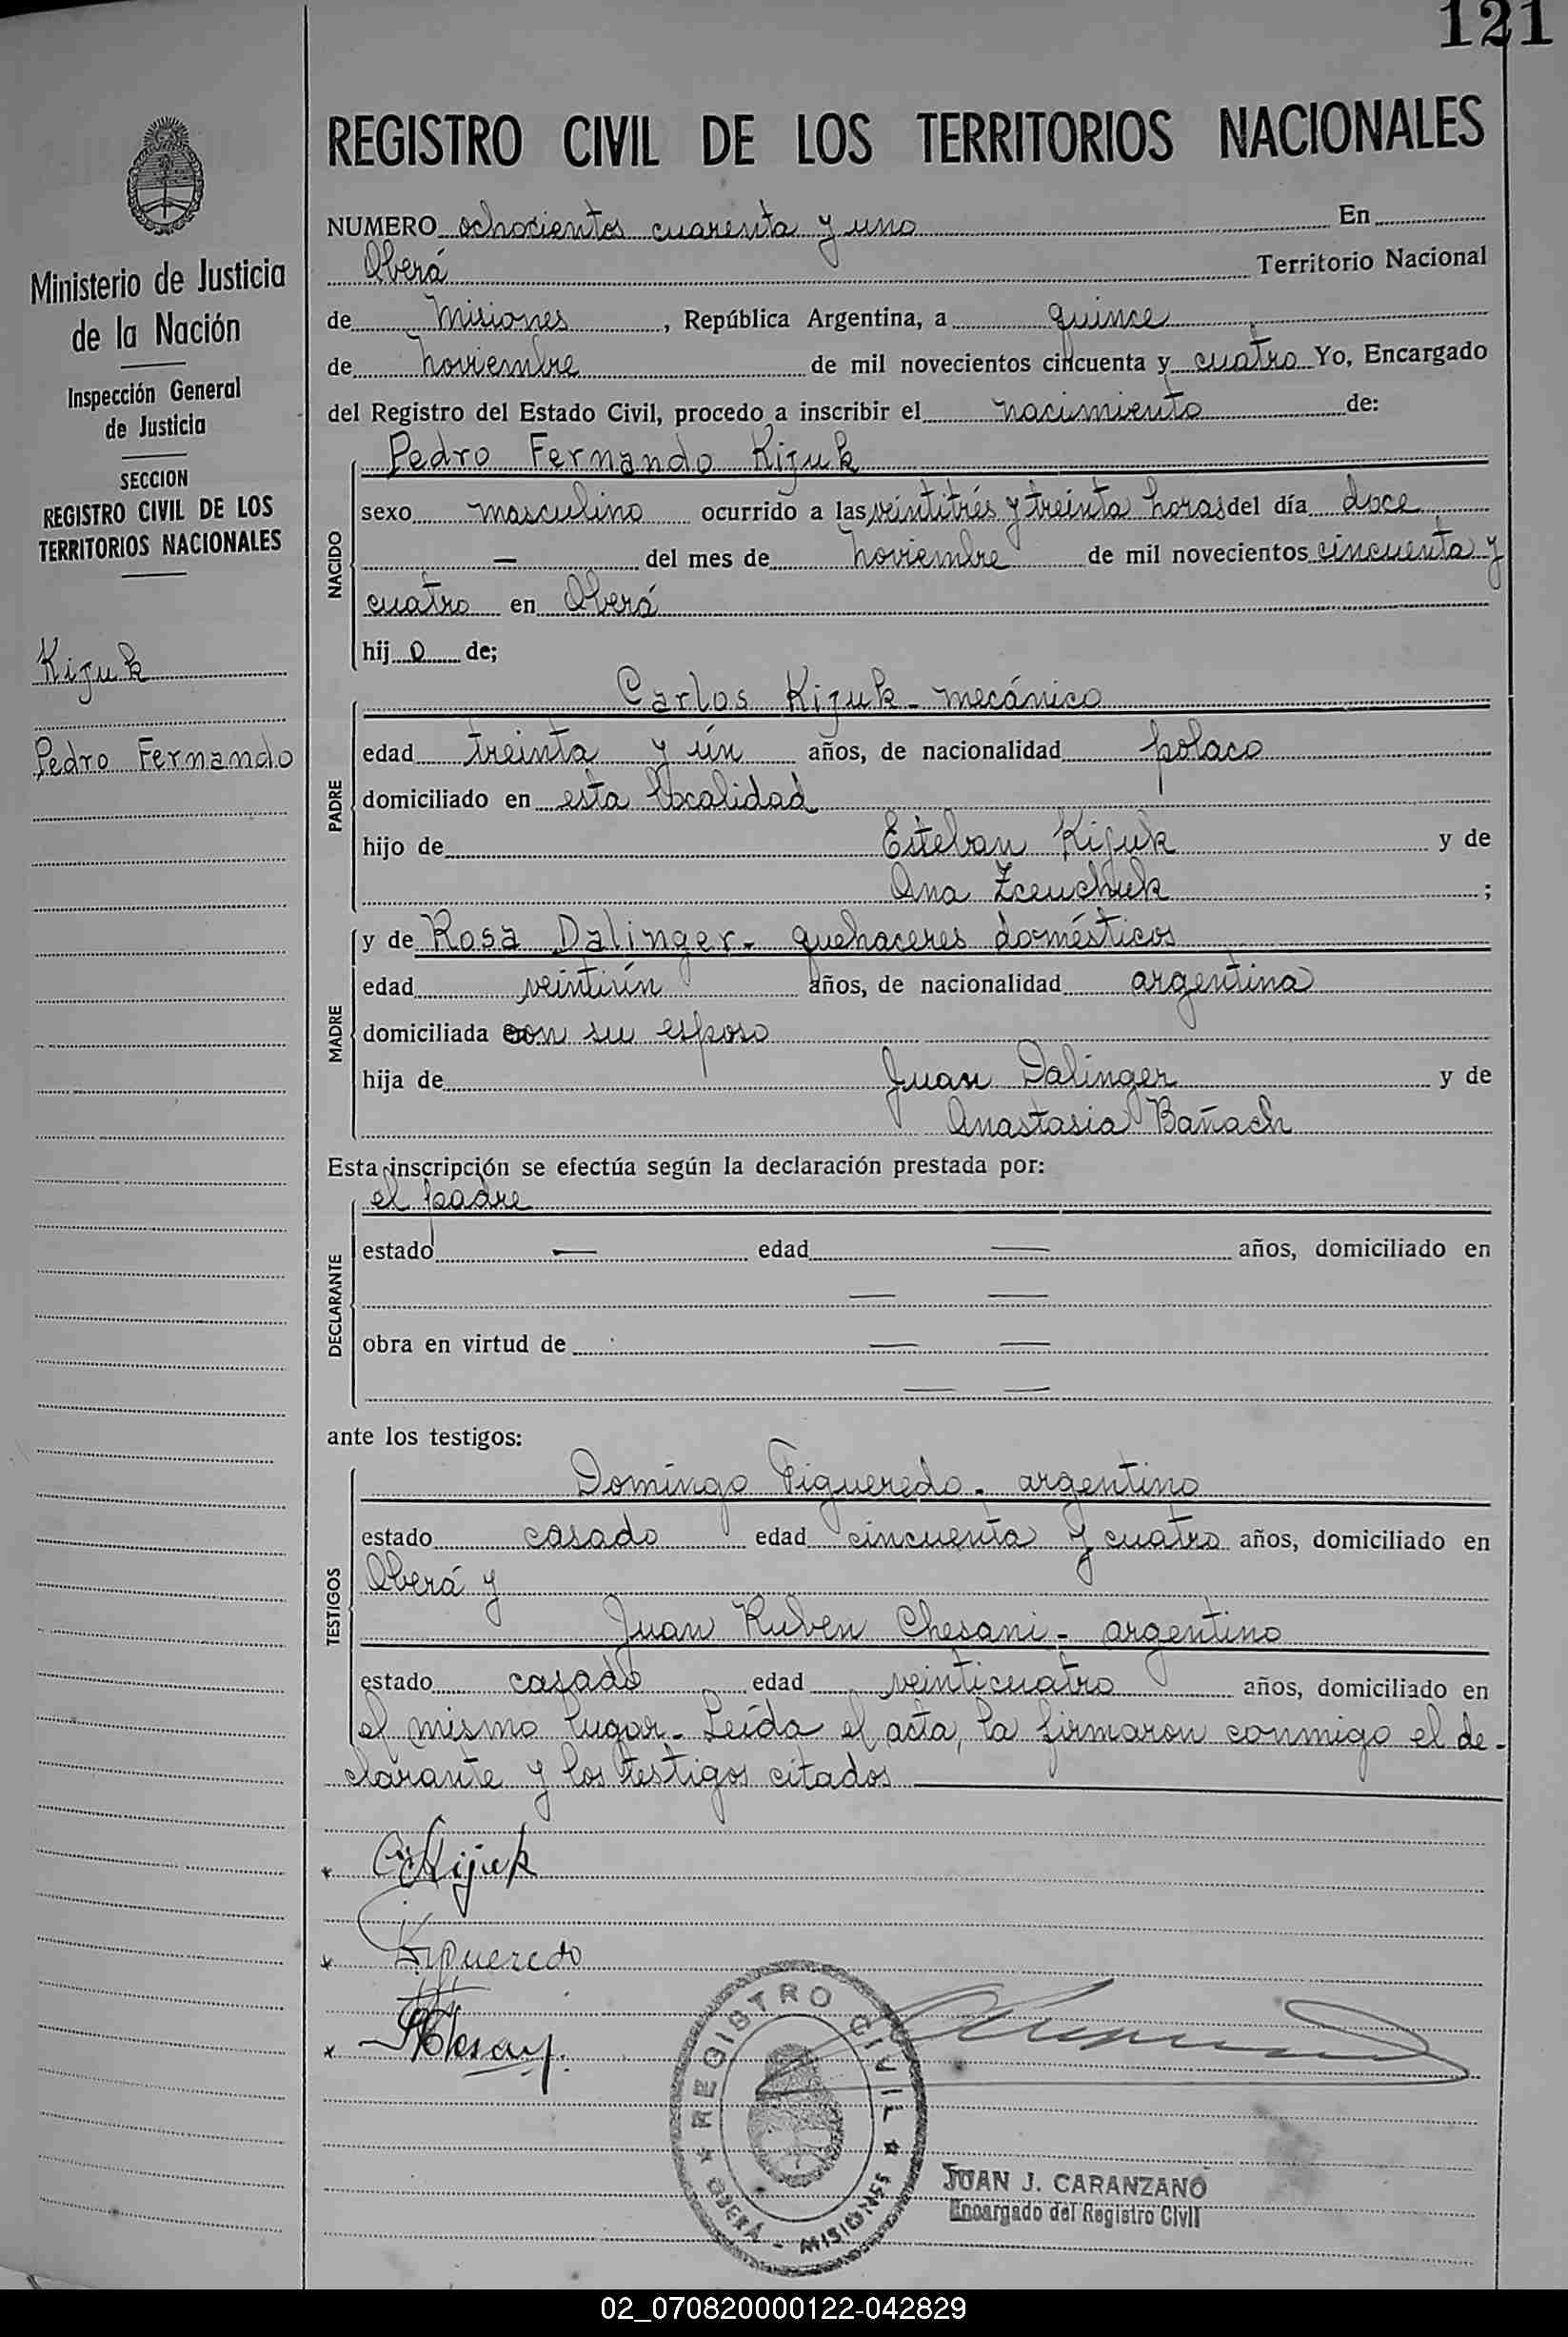 121
REGISTRO CIVIL DE LOS TERRITORIOS NACIONALES
Ministerio de Justicia
de la Nación
Inspección General
de Justicia
SECCION
REGISTRO CIVIL DE LOS
TERRITORIOS NACIONALES
Kijuk
Pedro Fernando
NUMERO ochocientos cuarenta y uno En
Oberá Territorio Nacional
de Misiones, República Argentina, a quince
de Noviembre de mil novecientos cincuenta y cuatro Yo, Encargado
del Registro del Estado Civil, procedo a inscribir el nacimiento de:
NACIDO
Pedro Fernando Kijuk
sexo masculino ocurrido a las veintitrés y treinta horas del día doce
— del mes de Noviembre de mil novecientos cincuenta y
cuatro en Oberá
hijo de;
PADRE
Carlos Kijuk - mecánico
edad treinta y ún años, de nacionalidad polaco
domiciliado en esta localidad
hijo de Esteban Kijuk y de
Ana ;
MADRE
y de Rosa Dalinger - quehaceres domésticos
edad veintiún años, de nacionalidad argentina
domiciliada con su esposo
hija de Juan Dalinger y de
Anastasia Bañach
Esta inscripción se efectúa según la declaración prestada por:
DECLARANTE
el padre
estado — edad — años, domiciliado en
— —
obra en virtud de — —
— —
ante los testigos:
TESTIGOS
Domingo Figueredo - argentino
estado casado edad cincuenta y cuatro años, domiciliado en
Oberá y
Juan Ruben Chesani - argentino
estado casado edad veinticuatro años, domiciliado en
el mismo lugar - Leída el acta, la firmaron conmigo el de-
clarante y los testigos citados
Kijuk
Figueredo
REGISTRO CIVIL
OBERÁ - MISIONES
JUAN J. CARANZANO
Encargado del Registro Civil
02_070820000122-042829